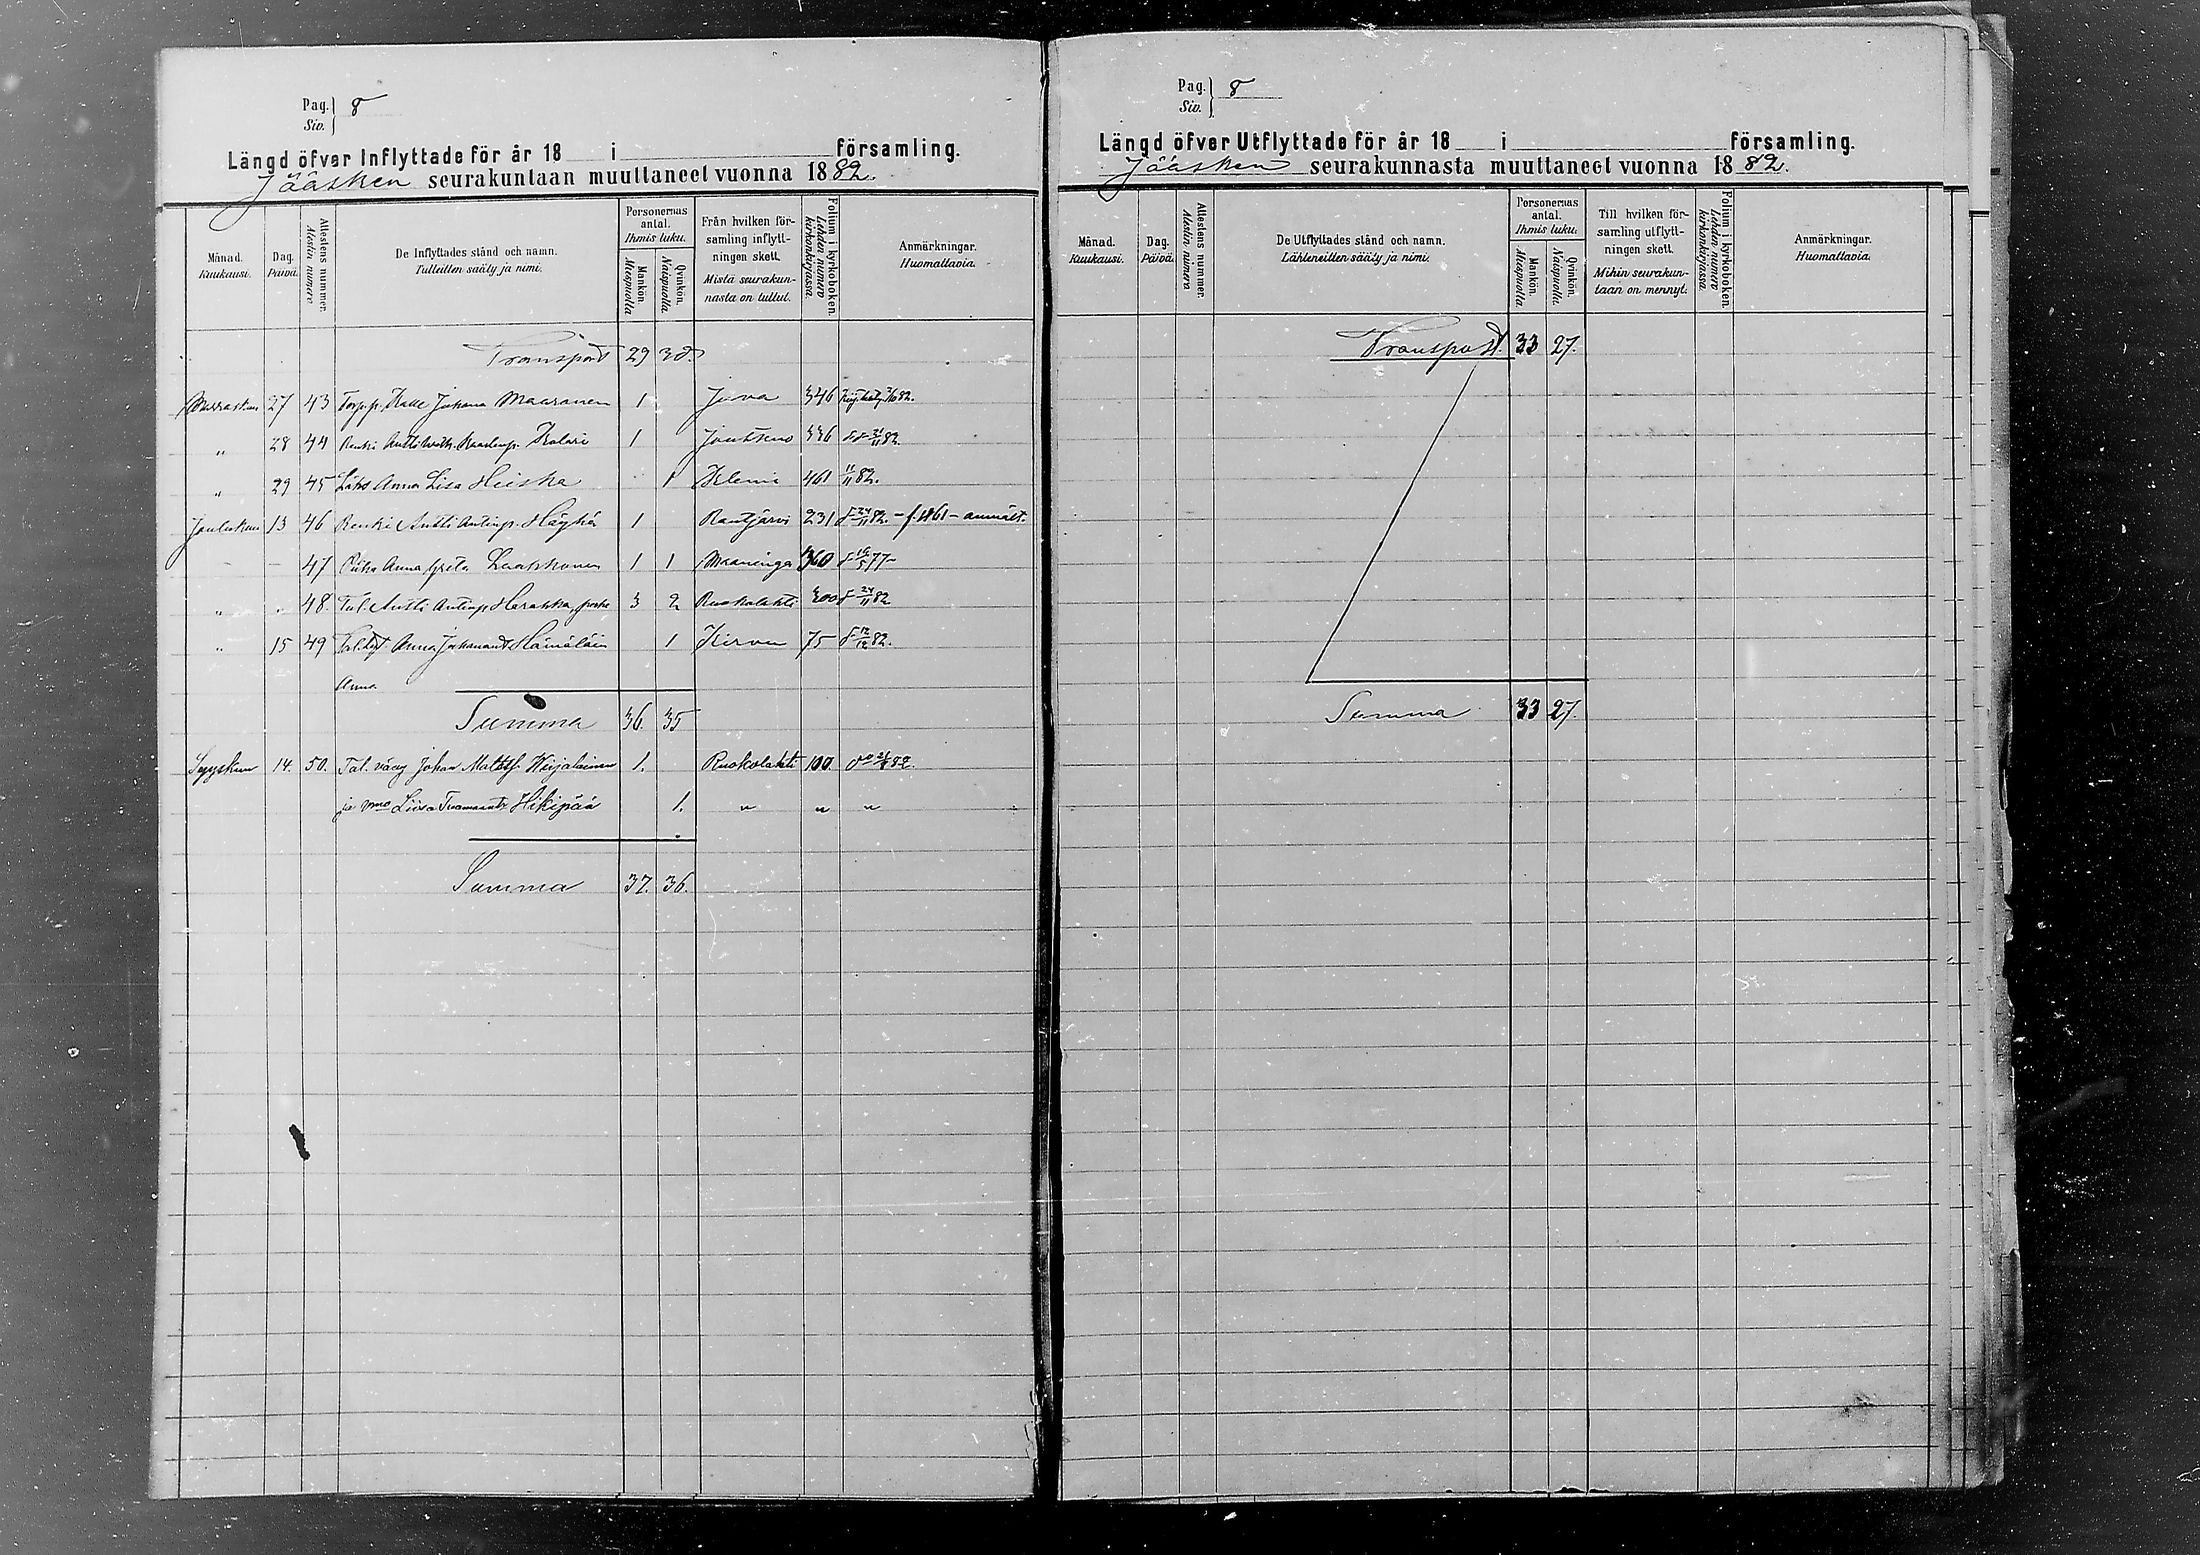 Pag. 8
Siv.
Längd öfver Inflyttade för år 18 i församling.
Jääsken seurakuntaan muuttaneet vuonna 1882.
Månad. Kuukausi.
Dag. Päivä.
Attestens nummer. Atestin numero
De Inflyttades stånd och namn. Tulleitten sääty ja nimi.
Personernas antal. Ihmis luku.
Mankön. Miespuolia
Qvinkön. Naispuolia
Från hvilken församling inflyttningen skett. Mistä seurakunnasta on tullut.
Folium i kyrkoboken. Lehden numero kirkonkirjassa.
Anmärkningar. Huomattavia.
Transport 29 30.
Marraskuu 27 43 Torp.p. Kalle Juhana Maaranen 1 Juva 346
" 28 44 Renki Antti 1 Joutseno 336 82
" 29 45 Lähs Anna Lisa Heiska 1 Klemi 461 11/11 82.
Jouluskuu 13 46 Renki Antti Antinp. Häyhä 1 Rautjärvi 231 24/11 82. - f. 461 - anmält.
- - 47 Piika Anna Greta Laakkonen 1 1 Maaninga 77
" " 48. Tal. Antti Antinp Harakka, 3 2 Ruokolahti 300 24/11 82
" 15 49 Anna Hämäläin 1 Kirvu 75 12/12 82.
Anna
Summa 36. 35
Syyskuu 14. 50. Tal. vävy Johan Wirjalainen 1. Ruokolahti 100 82.
ja vmo Liisa Hikipää 1. " " "
Summa 37. 36.
Pag. 8
Siv.
Längd öfver Utflyttade för år 18 i församling.
Jääsken seurakunnasta muuttaneet vuonna 1882.
Månad. Kuukausi.
Dag. Päivä.
Attestens nummer. Atestin numero
De Utflyttades stånd och namn. Lähteneitten sääty ja nimi.
Personernas antal. Ihmis luku.
Mankön. Miespuolia.
Qvinkön. Naispuolia.
Till hvilken församling utflyttningen skett. Mihin seurakuntaan on mennyt.
Folium i kyrkoboken. Lehden numero kirkonkirjassa.
Anmärkningar. Huomattavia.
Transport. 33 27.
Summa 33 27.